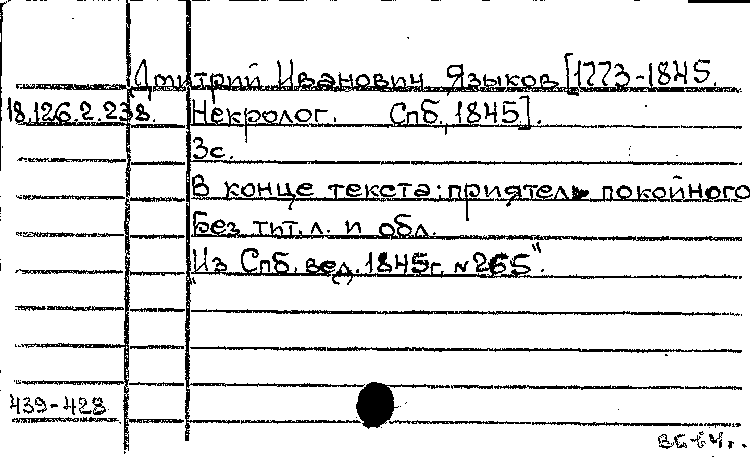 Дмитрий Иванович Языков [1773-1845.
18.126.2.238. Некролог. Спб, 1845].
3с.
В конце текста: приятель покойного
Без тит. л. и обл.
"Из Спб. вед. 1845г. №265".
439-428